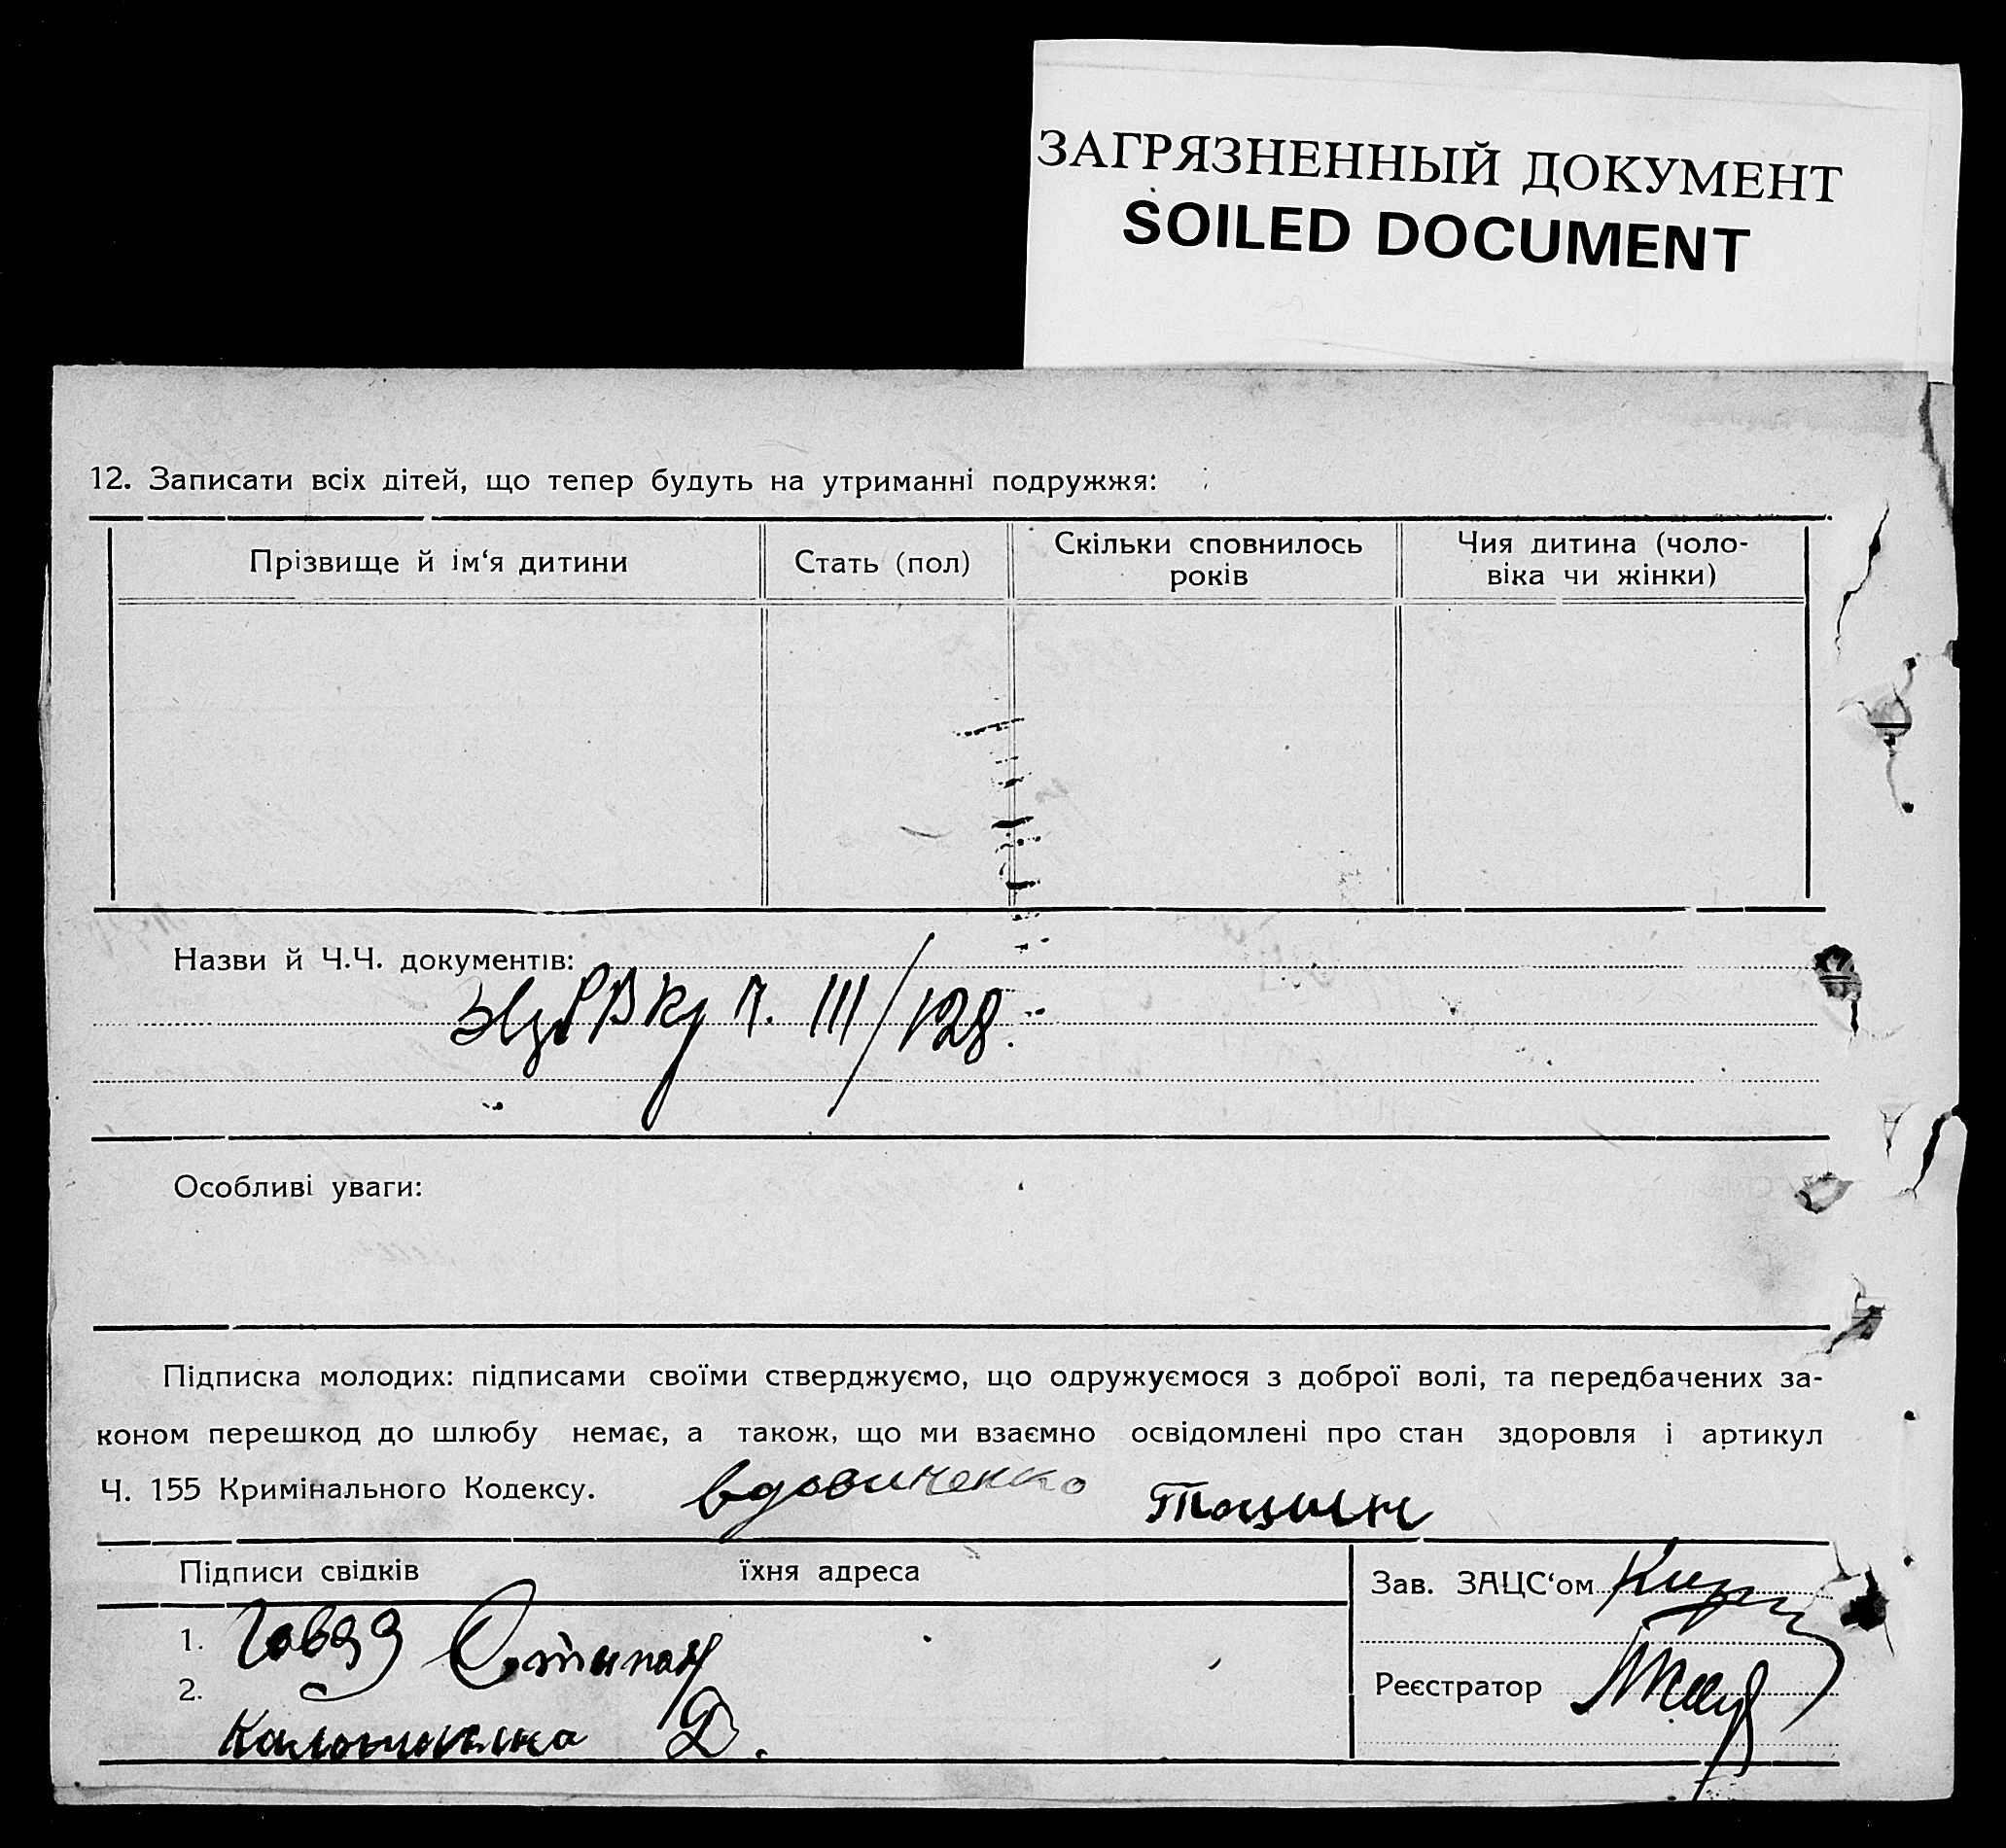 ЗАГРЯЗНЕННЫЙ ДОКУМЕНТ
SOILED DOCUMENT
12. Записати всіх дітей, що тепер будуть на утриманні подружжя:
Прізвище й ім‘я дитини
Стать (пол)
Скільки сповнилось
років
Чия дитина (чоло-
віка чи жінки)
Назви й Ч.Ч. документів:
III/128.
Особливі уваги:
Підписка молодих: підписами своїми стверджуємо, що одружуємося з доброї волі, та передбачених за-
коном перешкод до шлюбу немає, а також, що ми взаємно освідомлені про стан здоровля і артикул
Ч. 155 Кримінального Кодексу. Вдовиченко
Підписи свідків
їхня адреса
Зав. ЗАЦС‘ом
1.
2.
Реєстратор
Д.